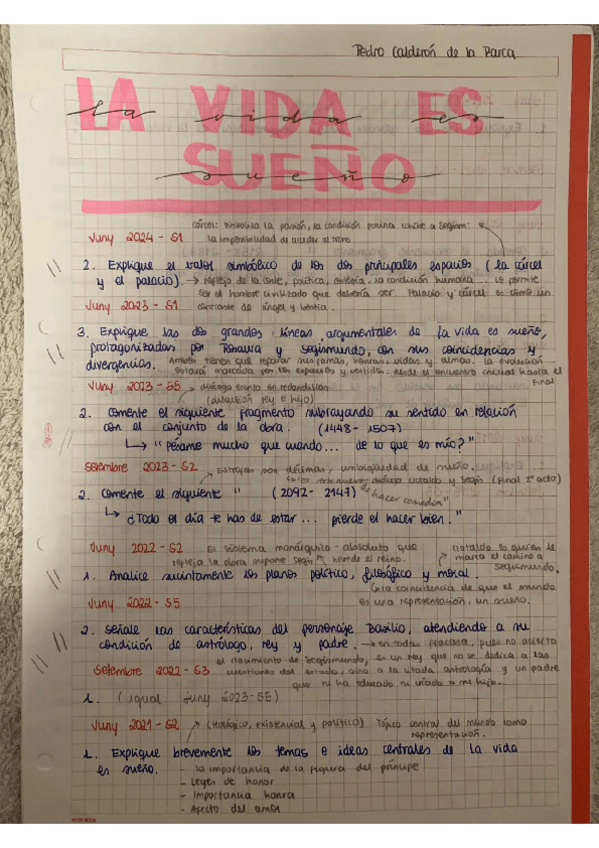 Pedro Calderón de la Barca
LA VIDA ES
la vida es
SUEÑO
sueño
cárcel: simboliza la pasión, la condición humana
Juny 2024 - S1 la imposibilidad de acceder al trono
2. Explique el valor simbólico de los dos principales espacios (la cárcel
y el palacio). → reflejo de la corte, política, la condición humana... le permite
ser el hombre civilizado que debería ser. Palacio y cárcel es como un
Juny 2023 - S1 contraste de ángel y bestia.
3. Explique las dos grandes líneas argumentales de La vida es sueño,
protagonizadas por Rosaura y Segismundo, con sus coincidencias y
divergencias. Ambos tienen que reparar sus famas, honras, vidas y almas. La evolución
estará marcada por los espacios y vestidos: desde el encuentro inicial hasta el
final
Juny 2023 - S5 → diálogo escrito en redondillas
(discusión rey e hijo)
2. Comente el siguiente fragmento subrayando su sentido en relación
con el conjunto de la obra. (1448 - 1507)
↳ "Pésame mucho que cuando... de lo que es mío?"
Setembre 2023 - S2 Estrofas son décimas, ambigüedad de sueño.
diálogo Clotaldo y Segis (final 2º acto)
2. Comente el siguiente " (2092 - 2147)
↳ ¿Todo el día te has de estar... pierde el hacer bien."
Juny 2022 - S2 El sistema monárquico - absoluto que
refleja la obra supone Segis herede el reino.
Clotaldo es quien le
marca el camino a
Segismundo.
1. Analice sucintamente los planos político, filosófico y moral.
↳ la coincidencia de que el mundo
es una representación, un sueño.
Juny 2022 - S5
2. Señale las características del personaje Basilio, atendiendo a su
condición de astrólogo, rey y padre. → en todas fracasa, pues no acierta
el nacimiento de Segismundo, es un rey que no se dedica a las
Setembre 2022 - S3 cuestiones del estado, sino a la citada astrología y un padre
que ni ha educado ni criado a su hijo.
1. (igual juny 2023 - S5)
Juny 2021 - S2 (teológico, existencial y político) Tópico central del mundo como
representación.
1. Explique brevemente los temas e ideas centrales de La vida
es sueño.
- La importancia de la figura del príncipe
- Leyes de honor
- Importancia honra
- Afecto del amor